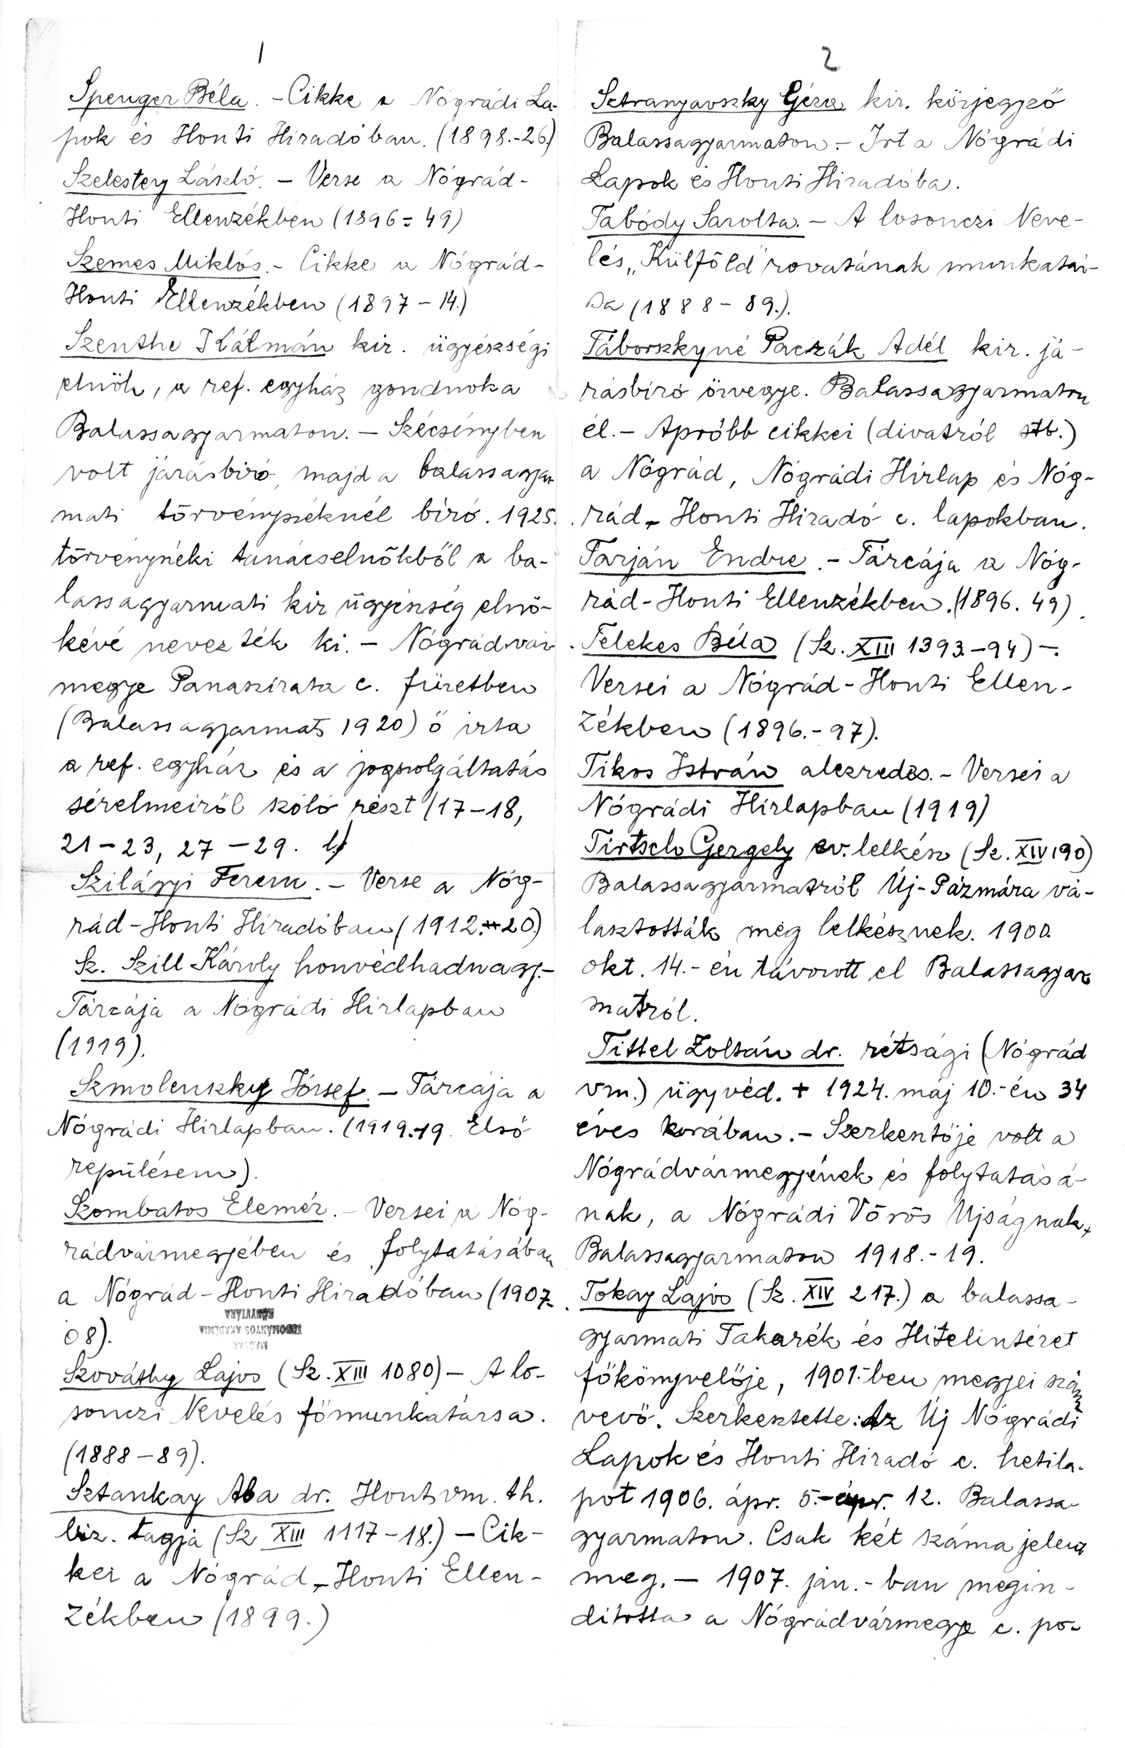 1
Spenger Béla. - Cikke a Nógrádi La-
pok és Honti Hiradóban. (1898.-26)
Szelestey László. - Verse a Nógrád-
Honti Ellenzékben (1896 = 49)
Szemes Miklós. - Cikke a Nógrád-
Honti Ellenzékben (1897 - 14.)
Szenthe Kálmán kir. ügyészségi
elnök, a ref. egyház gondnoka
Balassagyarmaton. - Szécsényben
volt járásbiró, majd a balassagyar
mati törvényszéknél biró. 1925.
törvényszéki tanácselnökből a ba-
lassagyarmati kir ügyészség elnö-
kévé nevezték ki. - Nógrádvár
megye Panaszirata c. füzetben
(Balassagyarmat 1920) ő irta
a ref. egyház és a jogszolgáltatás
sérelmeiről szóló részt (17-18,
21-23, 27-29. l)
Szilágyi Ferenc. - Verse a Nóg-
rád-Honti Hiradóban (1912. 20.)
Sz. Szill Károly honvédhadnagy. -
Tárcája a Nógrádi Hirlapban
(1919).
Szmolenszky József. - Tárcája a
Nógrádi Hirlapban. (1919.-19. Első
repülésem).
Szombatos Elemér. - Versei a Nóg-
rádvármegyében és folytatásában
a Nógrád-Honti Hiradóban (1907.
08).
MAGYAR
TUDOMÁNYOS AKADÉMIA
KÖNYVTÁRA
Szováthy Lajos (Sz. XIII 1080) - A lo-
sonczi Nevelés főmunkatársa.
(1888-89).
Sztankay Aba dr. Hontvm. th.
biz. tagja (Sz XIII 1117-18.) - Cik-
kei a Nógrád-Honti Ellen-
zékben (1899.)
2
Sztranyavszky Géza kir. közjegyző
Balassagyarmaton. - Irt a Nógrádi
Lapok és Honti Hiradóba.
Tabódy Sarolta. - A losonczi Neve-
lés „Külföld" rovatának munkatár-
sa (1888-89.).
Táborszkyné Paczák Adél kir. já-
rásbiró özvegye. Balassagyarmaton
él. - Apróbb cikkei (divatról stb.)
a Nógrád, Nógrádi Hírlap és Nóg-
rád-Honti Hiradó c. lapokban.
Tarján Endre. - Tárcája a Nóg-
rád-Honti Ellenzékben. (1896. 49).
Telekes Béla (Sz. XIII 1393-94) -.
Versei a Nógrád-Honti Ellen-
zékben (1896.-97).
Tikos István alezredes. - Versei a
Nógrádi Hirlapban (1919)
Tirtsch Gergely ev. lelkész (Sz. XIV 190)
Balassagyarmatról Új-Pázmára vá-
lasztották meg lelkésznek. 1900.
okt. 14.-én távozott el Balassagyar
matról.
Tittel Zoltán dr. rétsági (Nógrád
vm.) ügyvéd. + 1924. máj 10.-én 34
éves korában. - Szerkesztője volt a
Nógrádvármegyének és folytatásá-
nak, a Nógrádi Vörös Ujságnak,
Balassagyarmaton 1918.-19.
Tokay Lajos (Sz. XIV 217.) a balassa-
gyarmati Takarék és Hitelintézet
főkönyvelője, 1901.-ben megyei szám
vevő. Szerkesztette: Az Új Nógrádi
Lapok és Honti Hiradó c. hetila-
pot 1906. ápr. 5.-ápr. 12. Balassa-
gyarmaton. Csak két száma jelent
meg. - 1907. jan.-ban megin-
ditotta a Nógrádvármegye c. po-